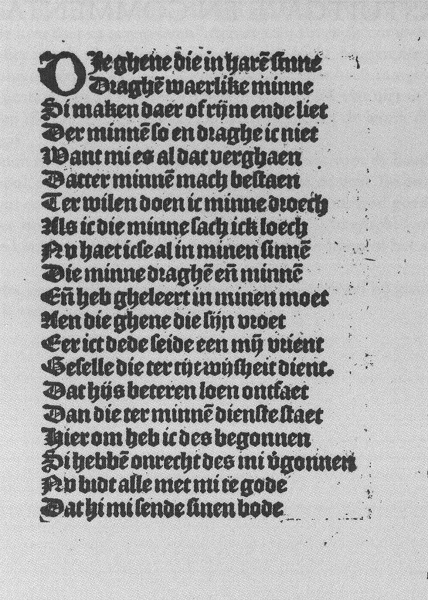 DJe ghene die in harē sinne
Draghē waerlike minne
Si maken daer of rijm ende liet
Der minnē so en draghe ic niet
Want mi es al dat verghaen
Datter minnē mach bestaen
Ter wilen doen ic minne droech
Als ic die minne sach ick loech
Nv haet icse al in minen sinnē
Die minne draghē eñ minnē
Eñ heb gheleert in minen moet
Aen die ghene die sijn vroet
Eer ict dede seide een mȳ vrient
Geselle die ter tijt wijsheit dient.
Dat hijs beteren loen ontfaet
Dan die ter minnē dienste staet
Hier om heb ic des begonnen
Si hebbē onrecht des mi v̓gonnen
Nv bidt alle met mi te gode
Dat hi mi sende sinen bode